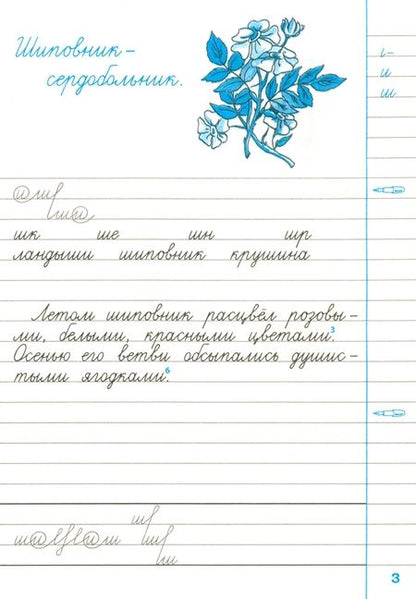 Шиповник-
сердобольник.
і-
и
ш
шк ше шн шр
ландыши шиповник крушина
Летом шиповник расцвёл розовы-
ми, белыми, красными цветами.³
Осенью его ветви обсыпались душис-
тыми ягодками.⁶
3